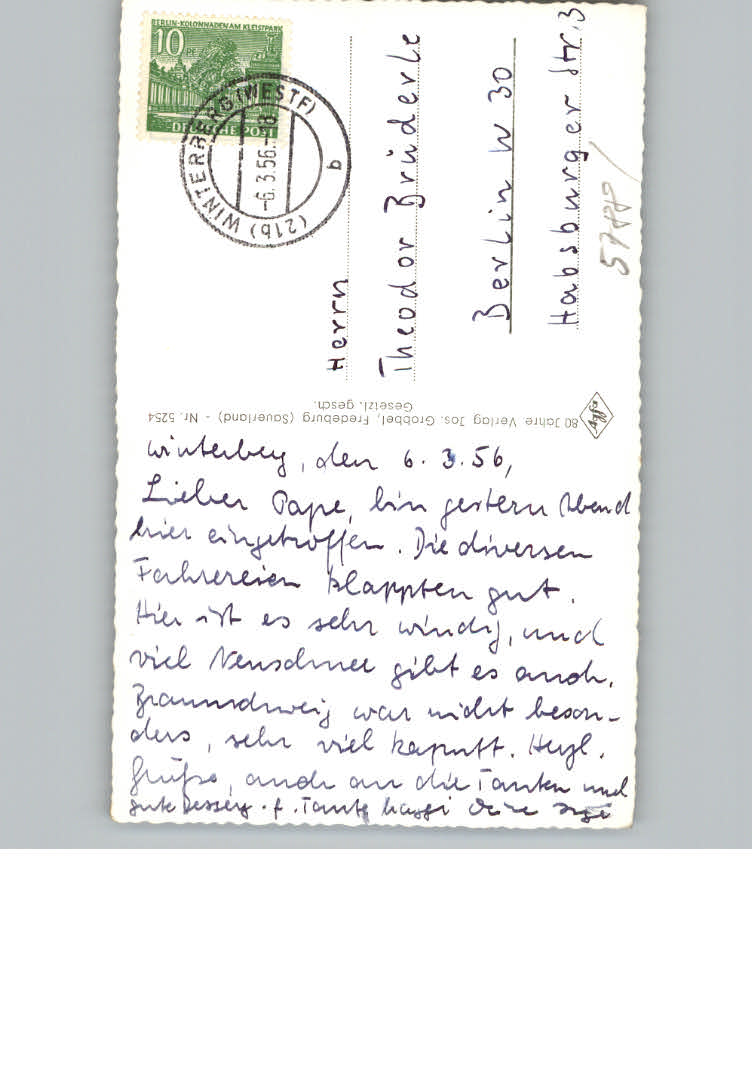 BERLIN-KOLONNADEN AM KLEISTPARK
10 PF
DEUTSCHE POST
(21b) WINTERBERG (WESTF)
-6.3.56.
Herrn
Theodor Brüderle
Berlin W 30
Habsburger Str. 3
5788
80 Jahre Verlag Jos. Grobbel, Fredeburg (Sauerland) - Nr. 5254
Gesetzl. gesch.
Winterberg, den 6.3.56,
Lieber Pape, bin gestern Abend
hier eingetroffen. Die diversen
Fahrereien klappten gut.
Hier ist es sehr windig, und
viel Neuschnee gibt es auch.
Braunschweig war nicht beson-
ders, sehr viel kaputt. Herzl.
Grüße, auch an die Tanten und
gute Besserg. f. Tante Deine